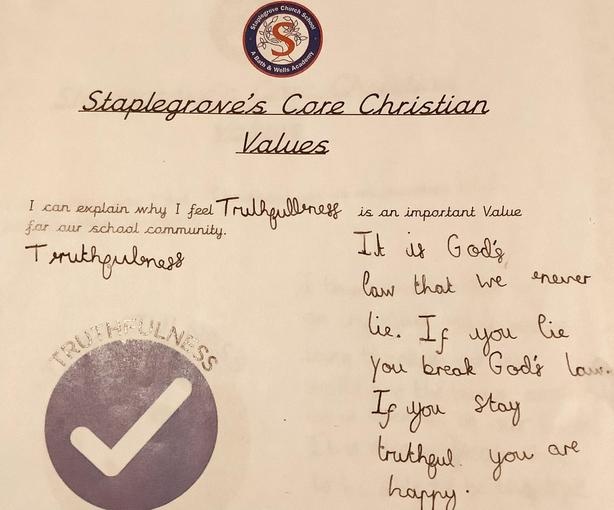 Staplegrove Church School
A Bath & Wells Academy
Staplegrove's Core Christian
Values
I can explain why I feel Truthfullness is an important Value
for our school community.
Truthfulness
TRUTHFULNESS
It is God's
law that we never
lie. If you lie
you break God's law.
If you stay
truthful. you are
happy.